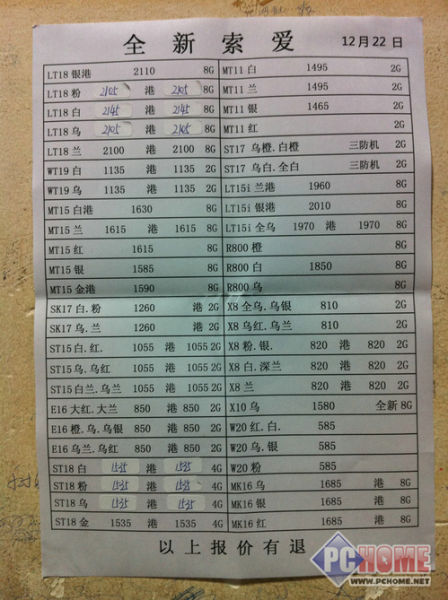 全新索爱 12月22日
LT18 银港 2110 8G
LT18 粉 2105 港 2105 8G
LT18 白 2145 港 2145 8G
LT18 乌 2105 港 2105 8G
LT18 兰 2100 港 2100 8G
WT19 白 1135 港 1135 2G
WT19 乌 1135 港 1135 2G
MT15 白港 1630 8G
MT15 兰 1615 港 1615 8G
MT15 红 1615 8G
MT15 银 1585 8G
MT15 金港 1590 8G
SK17 白.粉 1260 港 2G
SK17 乌.兰 1260 港 2G
ST15 白.红. 1055 港 1055 2G
ST15 乌.乌红 1055 港 1055 2G
ST15 白兰.乌兰 1055 港 1055 2G
E16 大红.大兰 850 港 850 2G
E16 橙.乌.乌银 850 港 850 2G
E16 乌兰.乌红 850 港 850 2G
ST18 白 1535 港 1535 4G
ST18 粉 1535 港 1535 4G
ST18 乌 1535 港 1535 4G
ST18 金 1535 港 1535 4G
MT11 白 1495 2G
MT11 兰 1495 2G
MT11 银 1465 2G
MT11 红 2G
ST17 乌橙.白橙 三防机 2G
ST17 乌白.全白 三防机 2G
LT15i 兰港 1960 8G
LT15i 银港 2010 8G
LT15i 全乌 1970 港 1970 8G
R800 橙 8G
R800 白 1850 8G
R800 乌 8G
X8 全乌.乌银 810 2G
X8 乌红.乌兰 810 2G
X8 粉.银. 820 港 820 2G
X8 白.深兰 820 港 820 2G
X8 兰 820 港 820 2G
X10 乌 1580 全新 8G
W20 红.白. 585
W20 乌.银. 585
W20 粉 585
MK16 乌 1685 港 8G
MK16 银 1685 港 8G
MK16 红 1685 港 8G
以上报价有退
PCHOME
WWW.PCHOME.NET